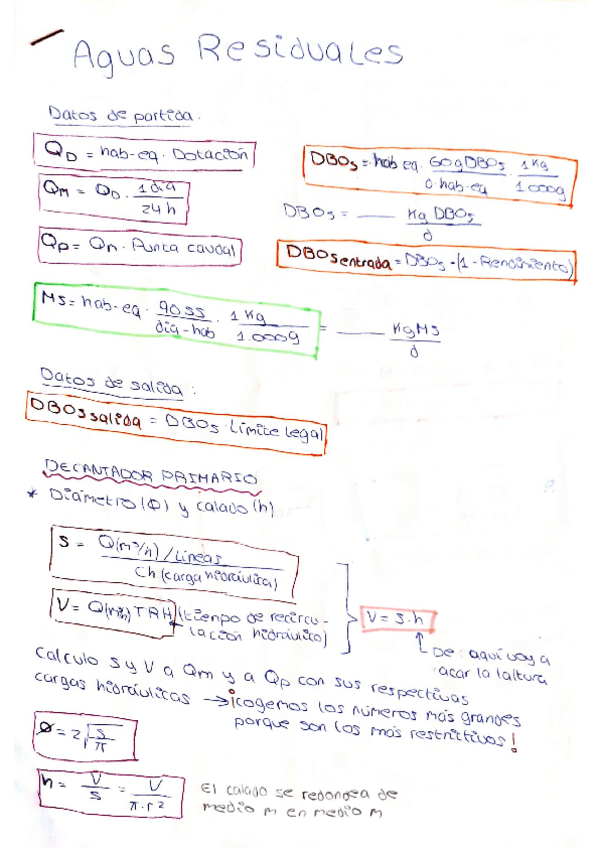 Aguas Residuales
Datos de partida:
Q_D = hab-eq. Dotación
Q_m = Q_D . 1 dia / 24 h
Q_p = Q_m . Punta caudal
DBO5 = hab eq. 60g DBO5 / d.hab-eq . 1 Kg / 1.000g
DBO5 = ___ Kg DBO5 / d
DBO5 entrada = DBO5 · (1 - Rendimiento)
MS = hab-eq. 90 SS / dia-hab . 1 Kg / 1.000g = ___ Kg MS / d
Datos de salida:
DBO5 salida = DBO5 . Límite legal
DECANTADOR PRIMARIO
* Diámetro (Φ) y calado (h)
S = Q(m³/h) / Líneas / Ch (carga hidráulica)
V = Q(m³/h) TRH (tiempo de recircu-
lación hidráulico)
V = S.h
De aquí voy a
acar la laltura
Calculo S y V a Qm y a Qp con sus respectivas
cargas hidráulicas → ¡cogemos los números más grandes
porque son los más restrictivos!
Ø = 2 √ S / π
h = V / S = V / π.r²
El calado se redondea de
medio m en medio m